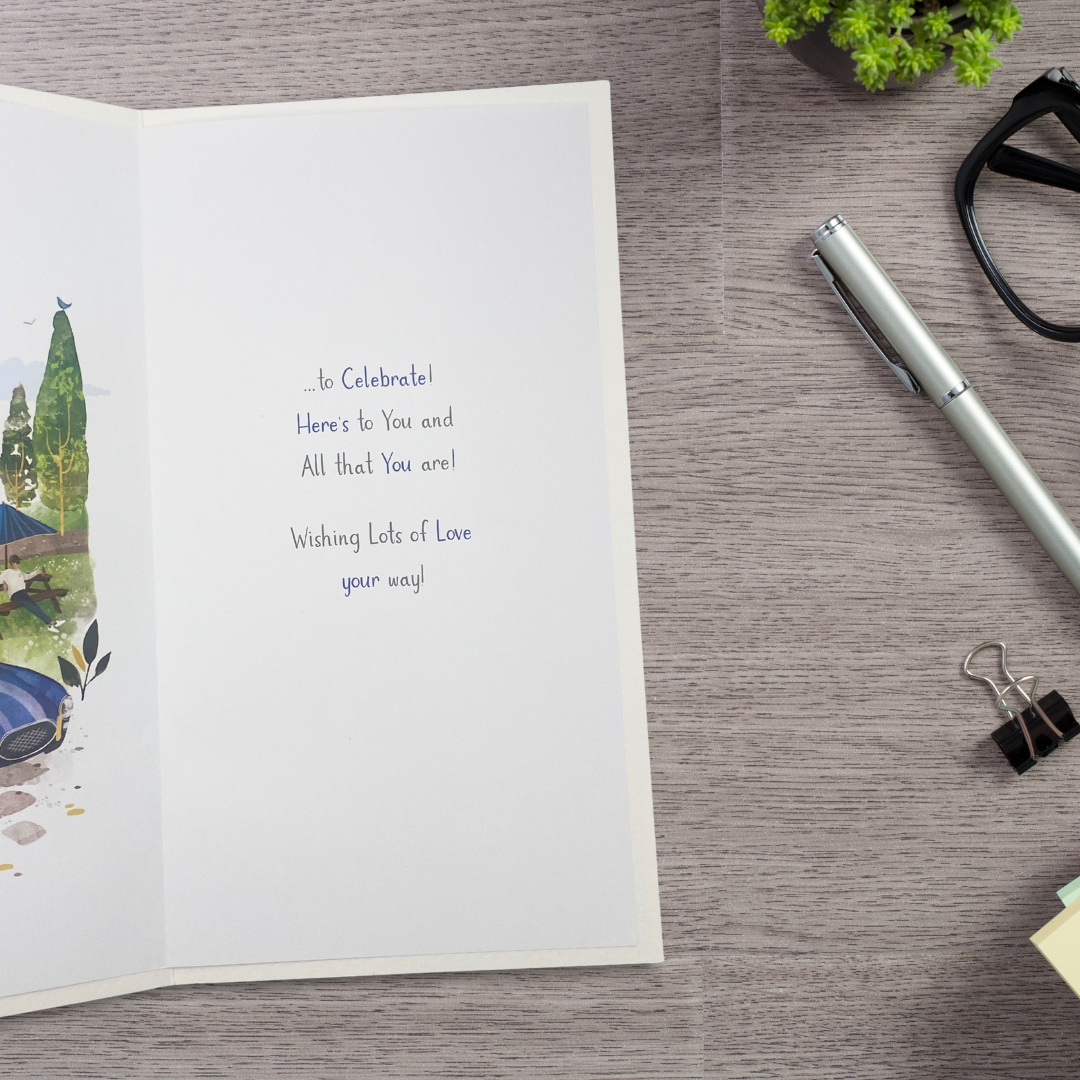 ...to Celebrate!
Here's to You and
All that You are!
Wishing Lots of Love
your way!